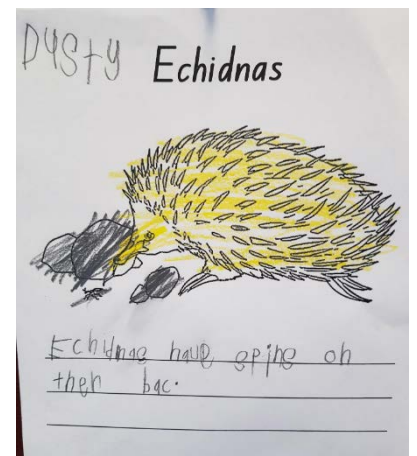 Dysty
Echidnas
Echidnae haue spine on
then bac.